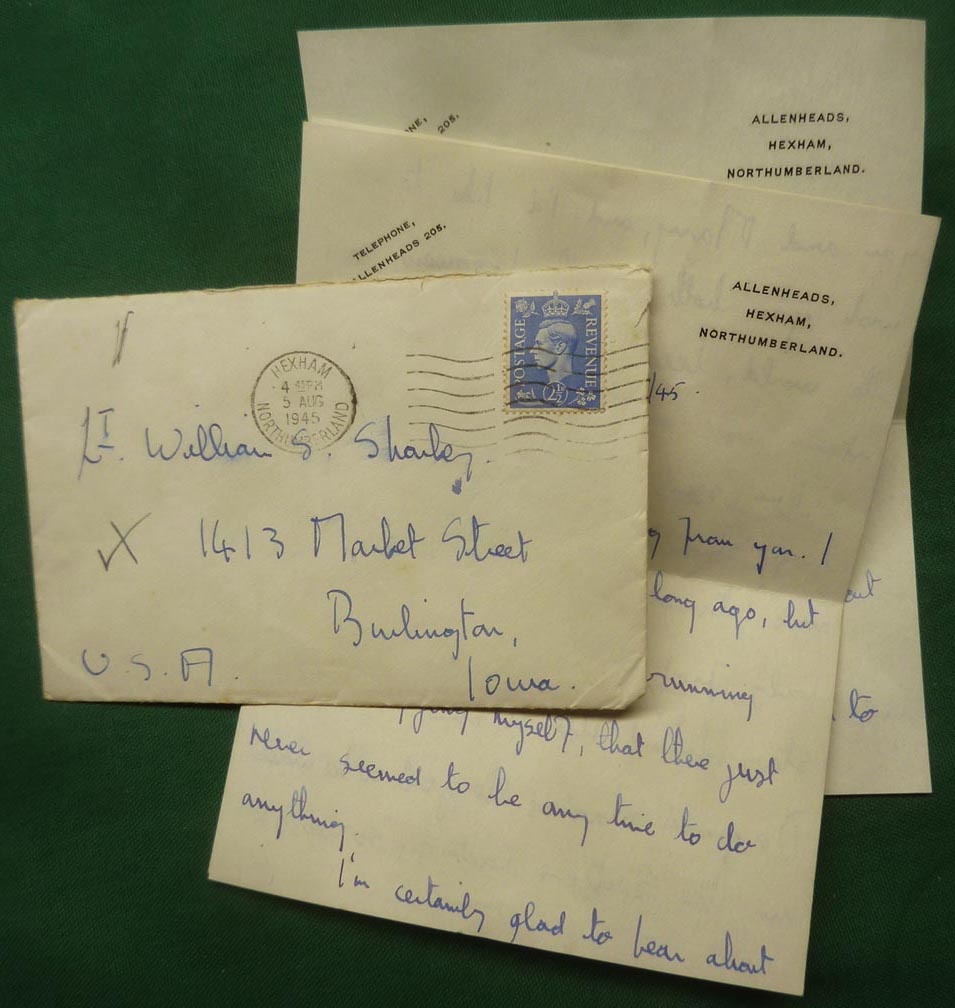 ALLENHEADS,
HEXHAM,
NORTHUMBERLAND.
NE,
205.
TELEPHONE,
LLENHEADS 205.
ALLENHEADS,
HEXHAM,
NORTHUMBERLAND.
/45.
POSTAGE
REVENUE
2½D
HEXHAM
4 PM
5 AUG
1945
NORTHUMBERLAND
Lt. William S. Sharkey.
1413 Market Street
Burlington,
Iowa.
U.S.A.
from you. I
long ago, but
out
running
to
myself, that there just
never seemed to be any time to do
anything.
I'm certainly glad to hear about